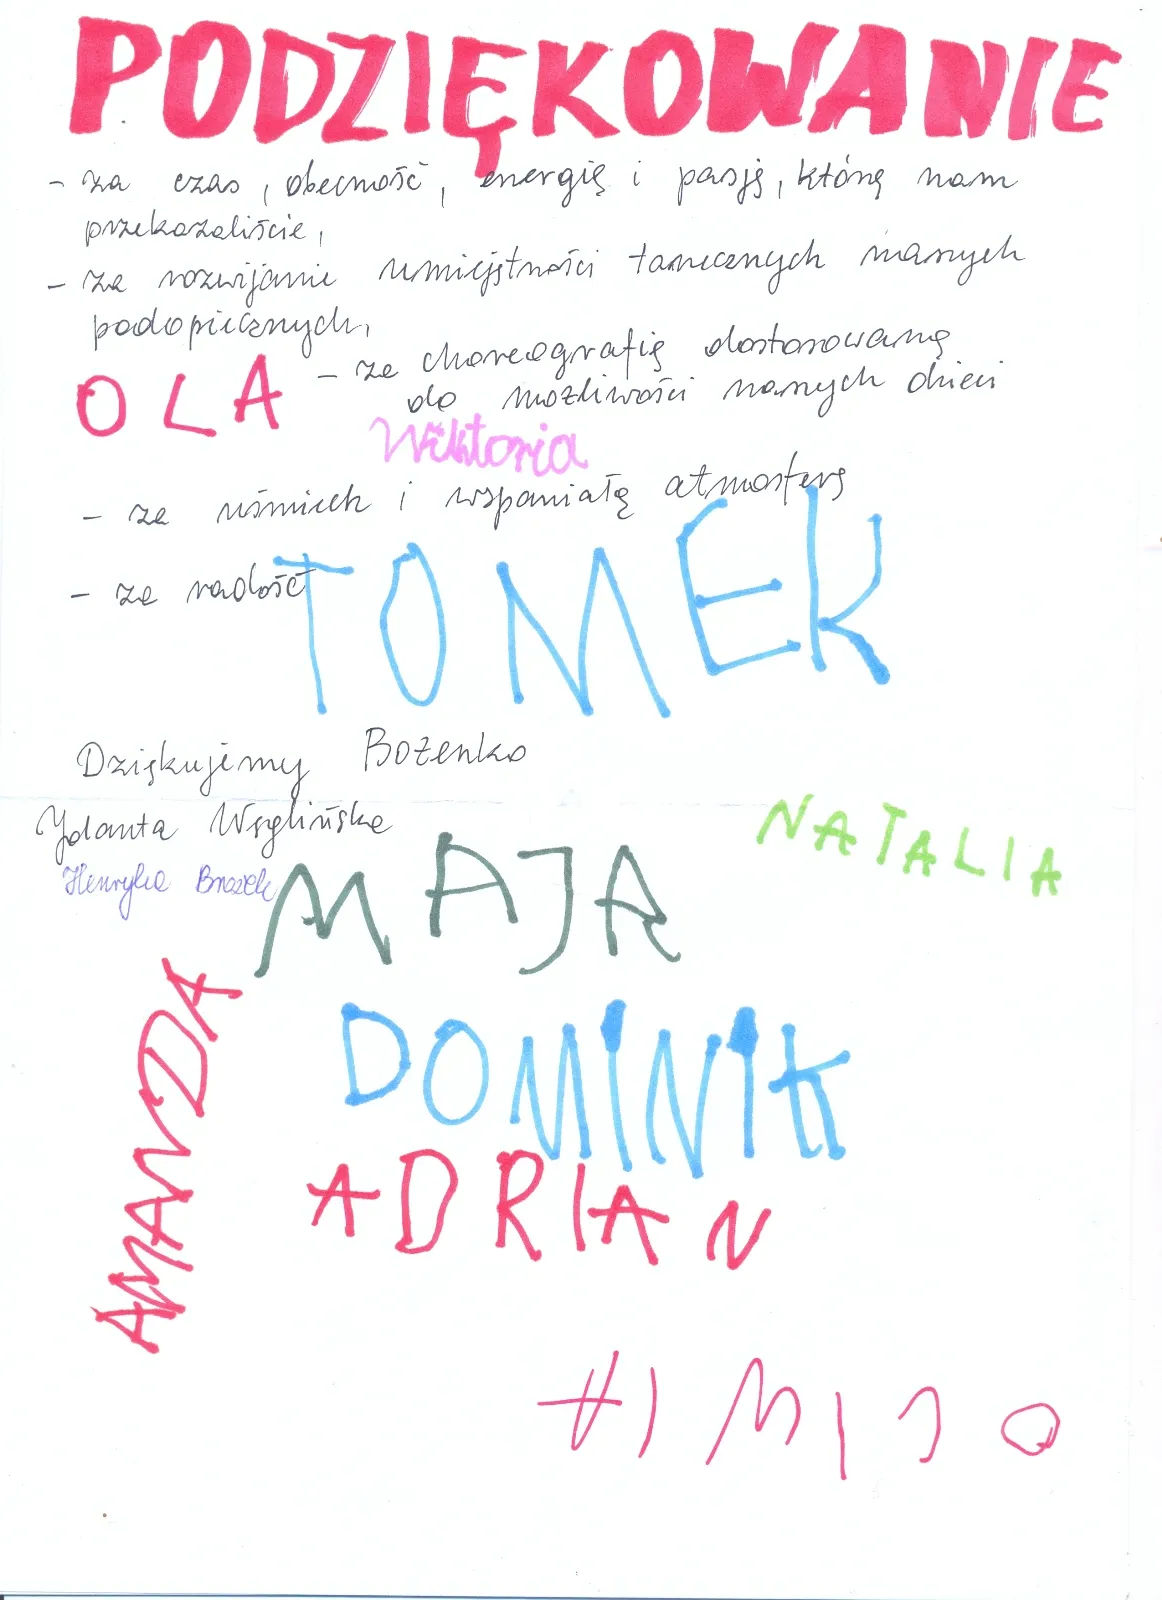 PODZIĘKOWANIE
- za czas, obecność, energię i pasję, którą nam
przekazaliście,
- za rozwijanie umiejętności tanecznych naszych
podopiecznych,
- za choreografię dostosowaną
do możliwości naszych dzieci
OLA
Wiktoria
- za uśmiech i wspaniałą atmosferę
- za radość
TOMEK
Dziękujemy Bożenko
Jolanta Węglińska
NATALIA
Henryka
MAJA
AMANDA
DOMINIK
ADRIAN